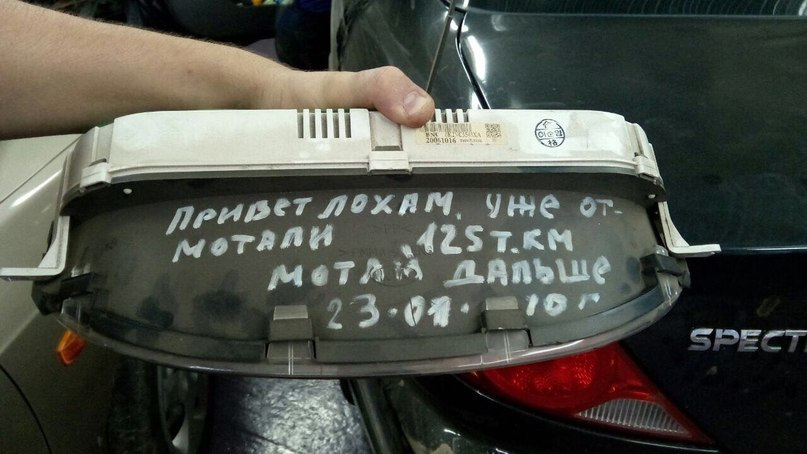 20061016
ПРИВЕТ ЛОХАМ, УЖЕ ОТ-
МОТАЛИ 125Т.КМ
МОТАЙ ДАЛЬШЕ
23.01. 10г
SPECT